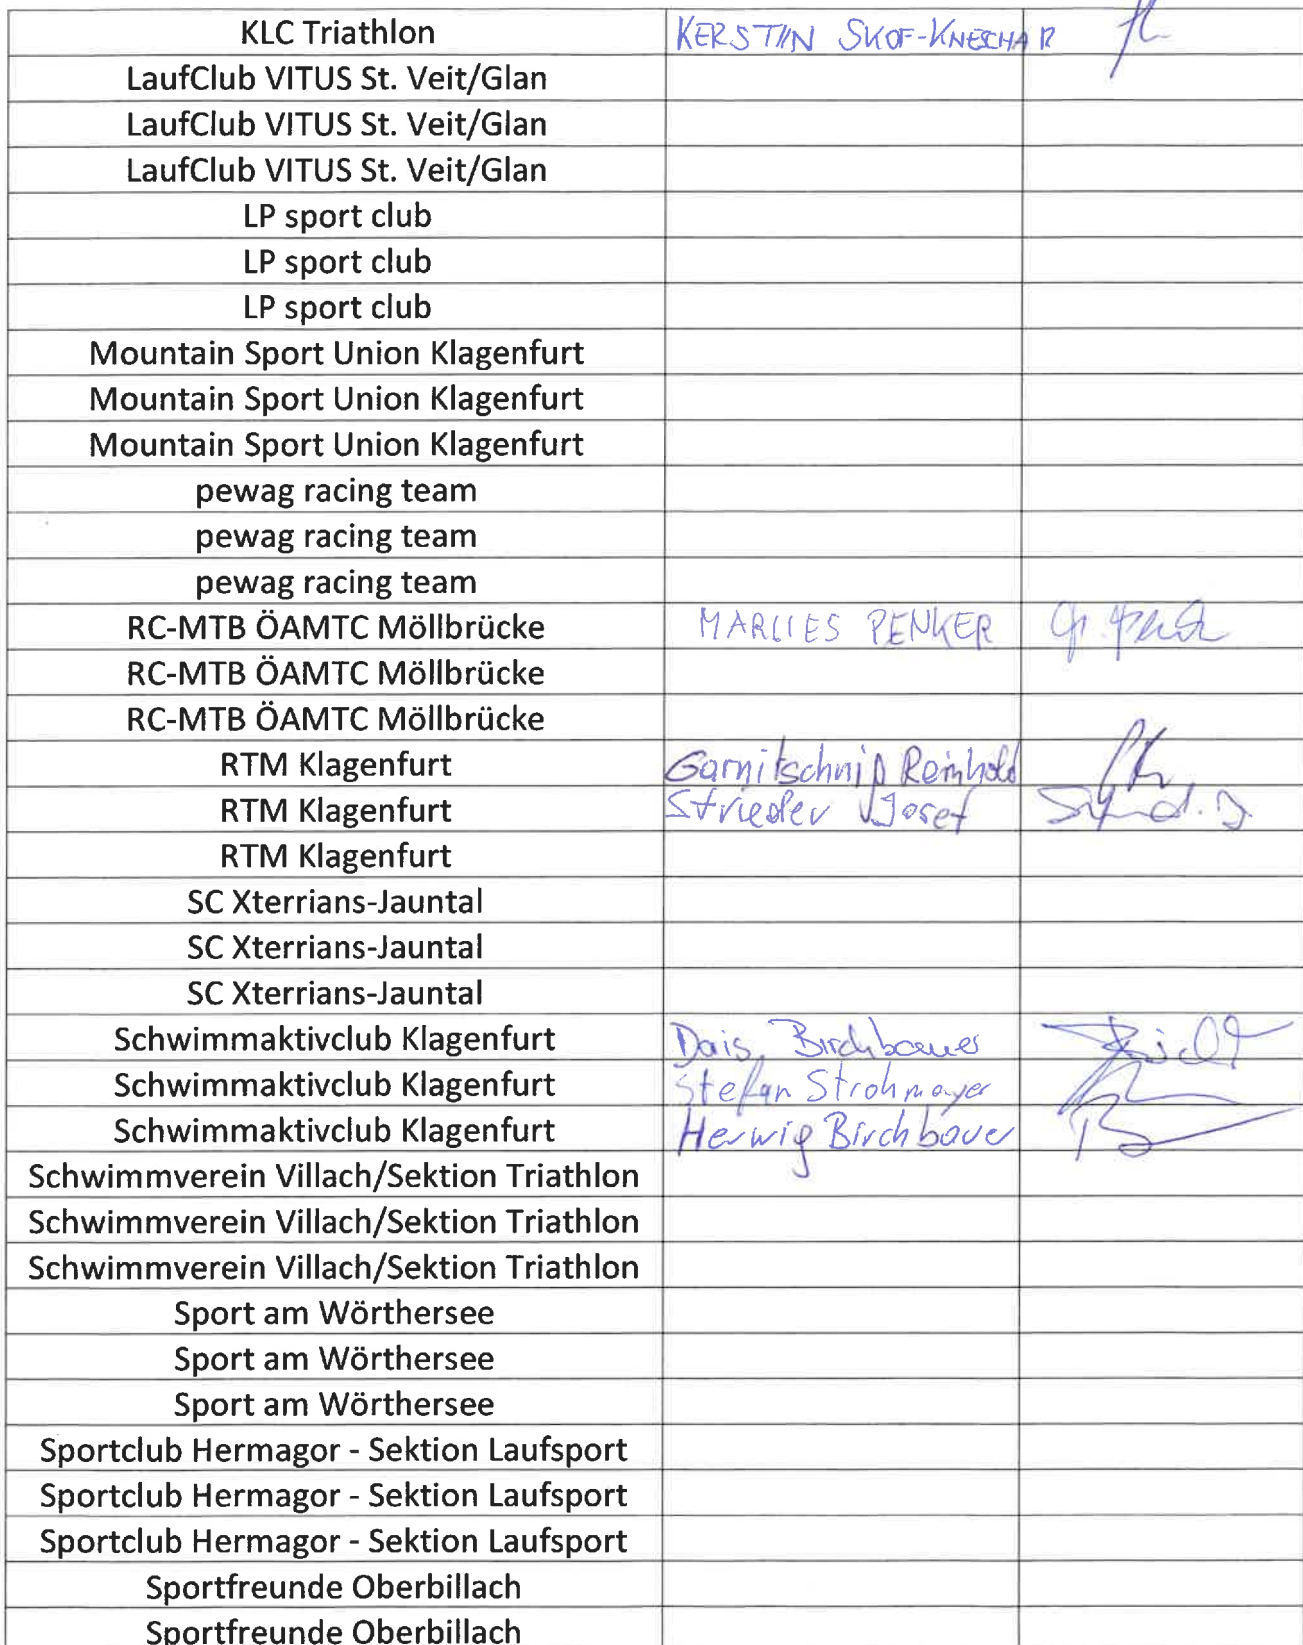 KLC Triathlon KERSTIN SKOF-KNESCHAR
LaufClub VITUS St. Veit/Glan
LaufClub VITUS St. Veit/Glan
LaufClub VITUS St. Veit/Glan
LP sport club
LP sport club
LP sport club
Mountain Sport Union Klagenfurt
Mountain Sport Union Klagenfurt
Mountain Sport Union Klagenfurt
pewag racing team
pewag racing team
pewag racing team
RC-MTB ÖAMTC Möllbrücke MARLIES PENKER
RC-MTB ÖAMTC Möllbrücke
RC-MTB ÖAMTC Möllbrücke
RTM Klagenfurt Garnitschnig Reinhold
RTM Klagenfurt Strieder Josef
RTM Klagenfurt
SC Xterrians-Jauntal
SC Xterrians-Jauntal
SC Xterrians-Jauntal
Schwimmaktivclub Klagenfurt Birchbauer
Schwimmaktivclub Klagenfurt Stefan Strohmayer
Schwimmaktivclub Klagenfurt Herwig Birchbauer
Schwimmverein Villach/Sektion Triathlon
Schwimmverein Villach/Sektion Triathlon
Schwimmverein Villach/Sektion Triathlon
Sport am Wörthersee
Sport am Wörthersee
Sport am Wörthersee
Sportclub Hermagor - Sektion Laufsport
Sportclub Hermagor - Sektion Laufsport
Sportclub Hermagor - Sektion Laufsport
Sportfreunde Oberbillach
Sportfreunde Oberbillach